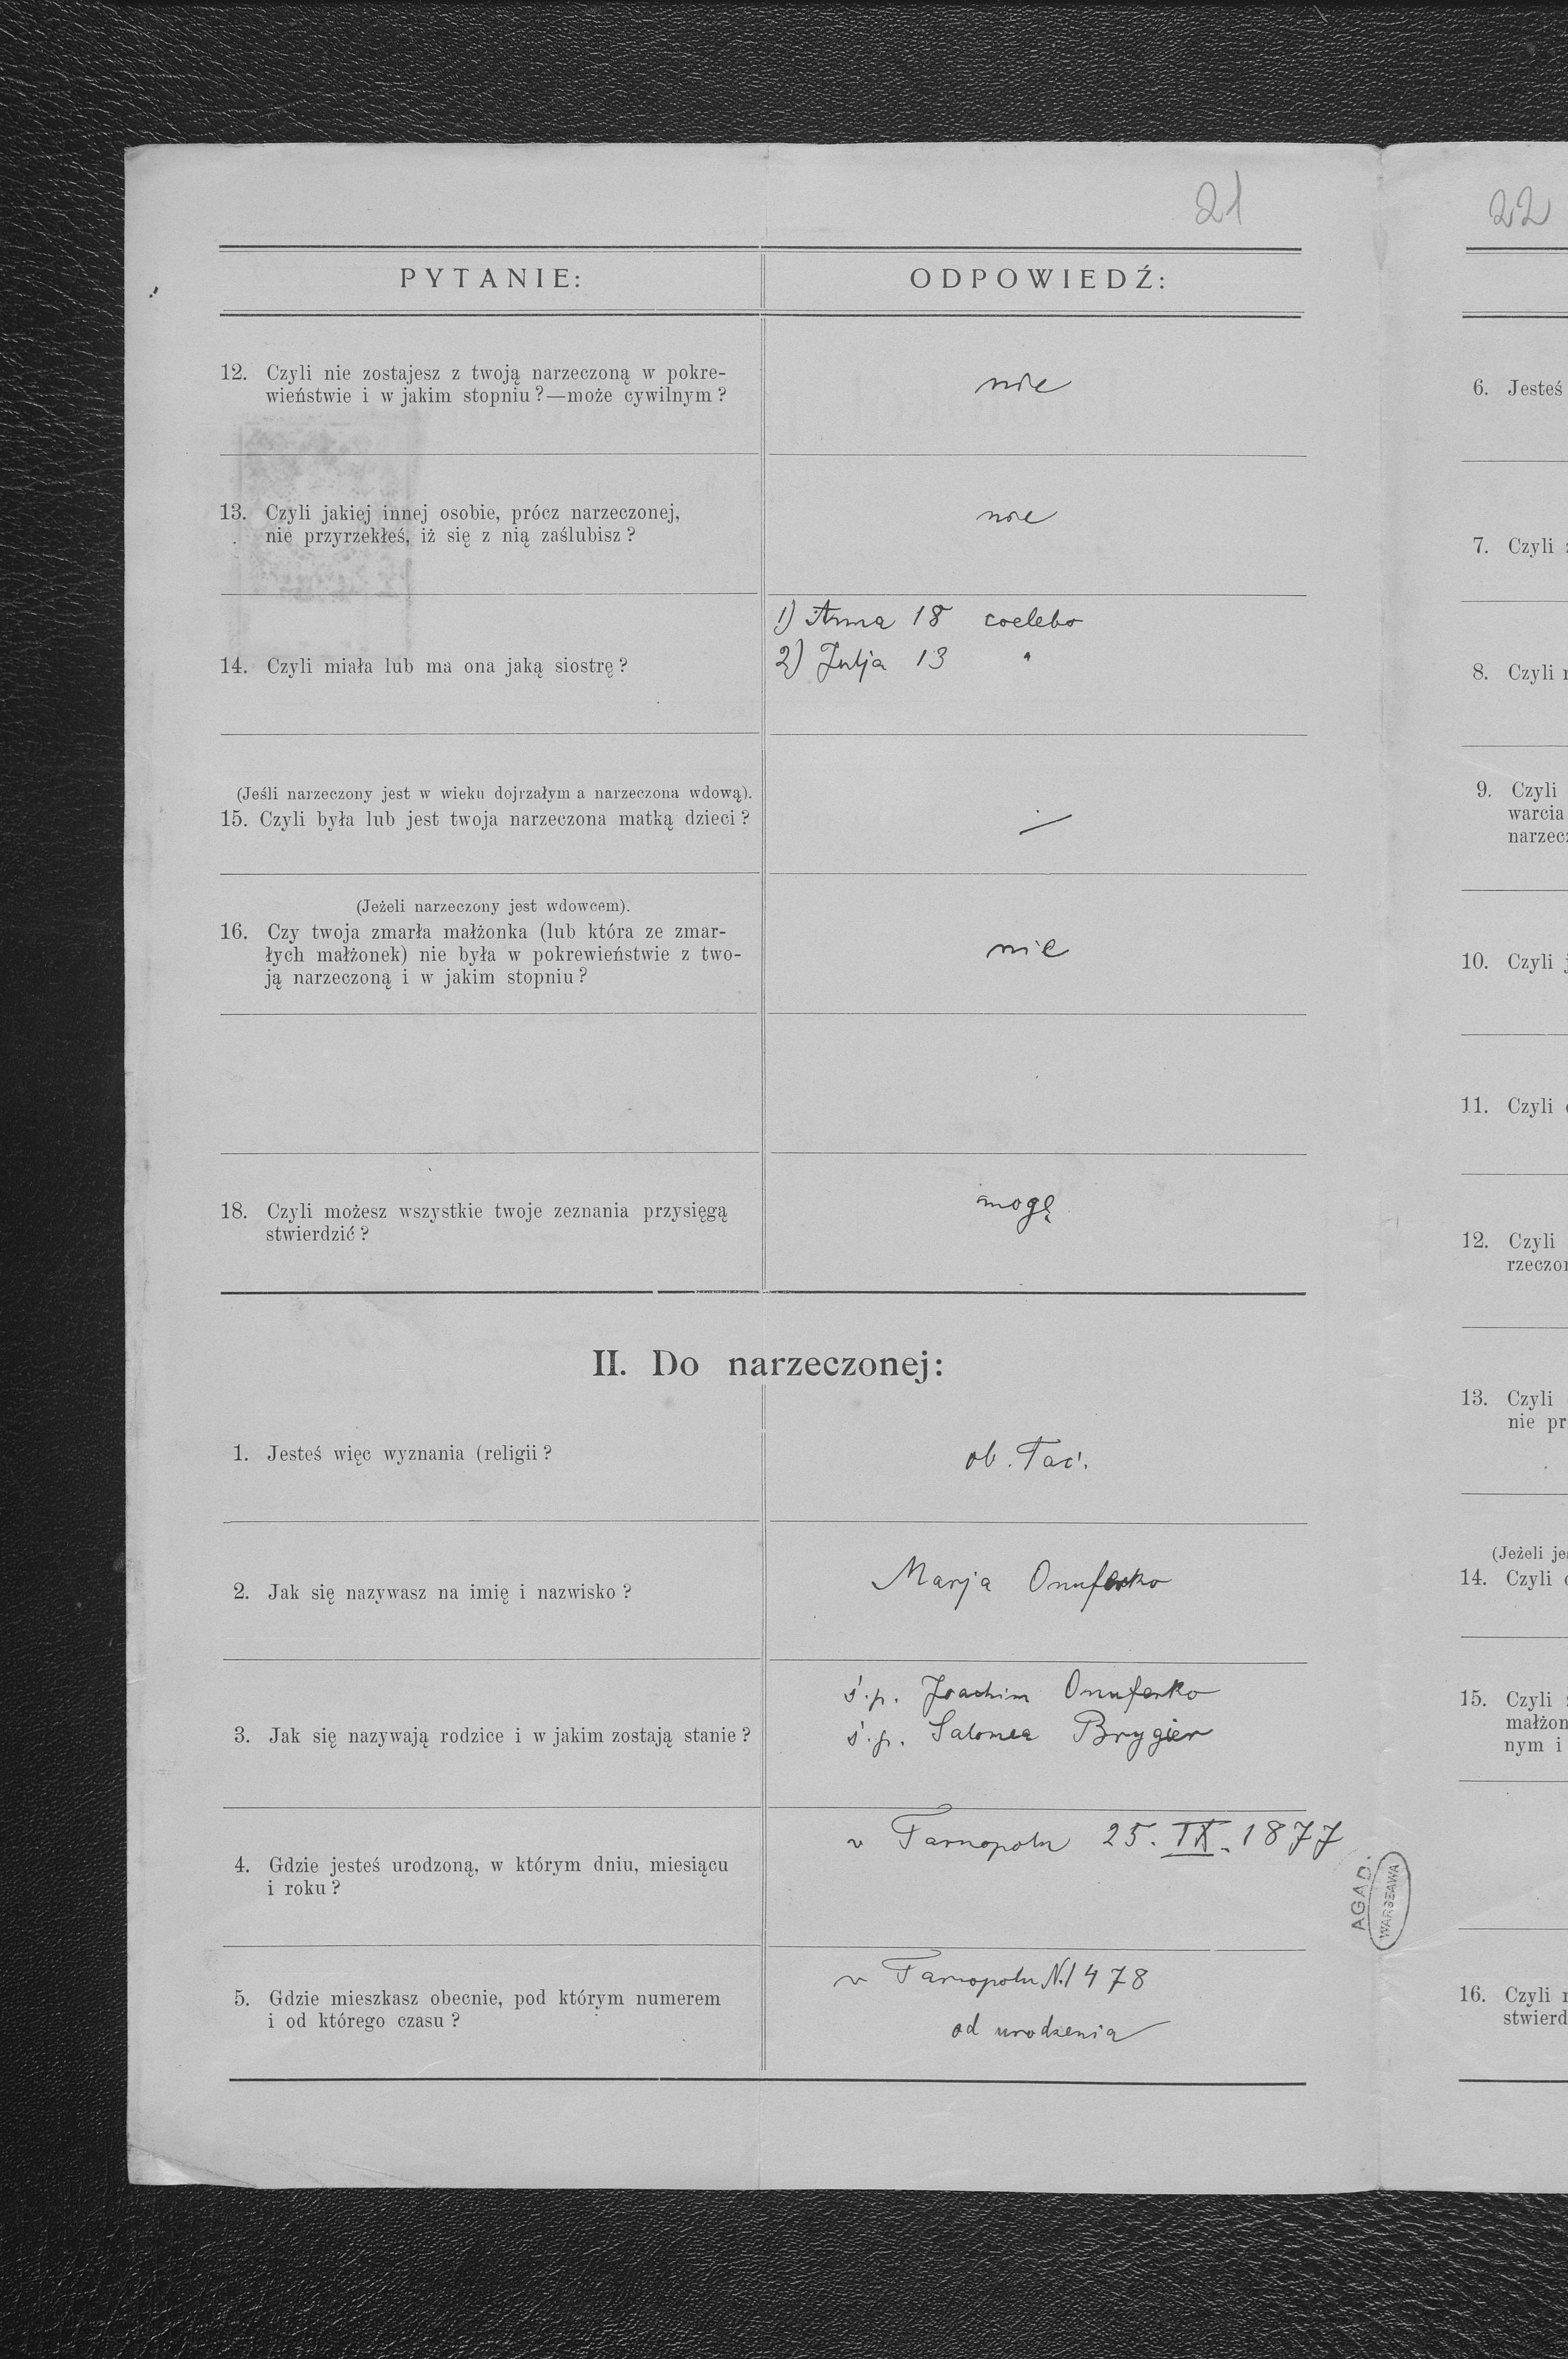 21
PYTANIE:
ODPOWIEDŹ:
12. Czyli nie zostajesz z twoją narzeczoną w pokre-
wieństwie i w jakim stopniu?—może cywilnym?
nie
13. Czyli jakiej innej osobie, prócz narzeczonej,
nie przyrzekłeś, iż się z nią zaślubisz?
nie
14. Czyli miała lub ma ona jaką siostrę?
1) Anna 18 coelebs
2) Julja 13 "
(Jeśli narzeczony jest w wieku dojrzałym a narzeczona wdową).
15. Czyli była lub jest twoja narzeczona matką dzieci?
(Jeżeli narzeczony jest wdowcem).
16. Czy twoja zmarła małżonka (lub która ze zmar-
łych małżonek) nie była w pokrewieństwie z two-
ją narzeczoną i w jakim stopniu?
nie
18. Czyli możesz wszystkie twoje zeznania przysięgą
stwierdzić?
mogę
II. Do narzeczonej:
1. Jesteś więc wyznania (religii?
ob. łac.
2. Jak się nazywasz na imię i nazwisko?
Marja Onuferko
3. Jak się nazywają rodzice i w jakim zostają stanie?
ś.p. Joachim Onuferko
ś.p. Salomea Brygier
4. Gdzie jesteś urodzoną, w którym dniu, miesiącu
i roku?
w Tarnopolu 25. IX. 1877
5. Gdzie mieszkasz obecnie, pod którym numerem
i od którego czasu?
w Tarnopolu N.1478
od urodzenia
AGAD.
WARSZAWA
22
6. Jesteś
7. Czyli
8. Czyli
9. Czyli
warcia
narzec
10. Czyli
11. Czyli
12. Czyli
rzeczo
13. Czyli
nie pr
(Jeżeli je
14. Czyli
15. Czyli
małżon
nym i
16. Czyli
stwierd